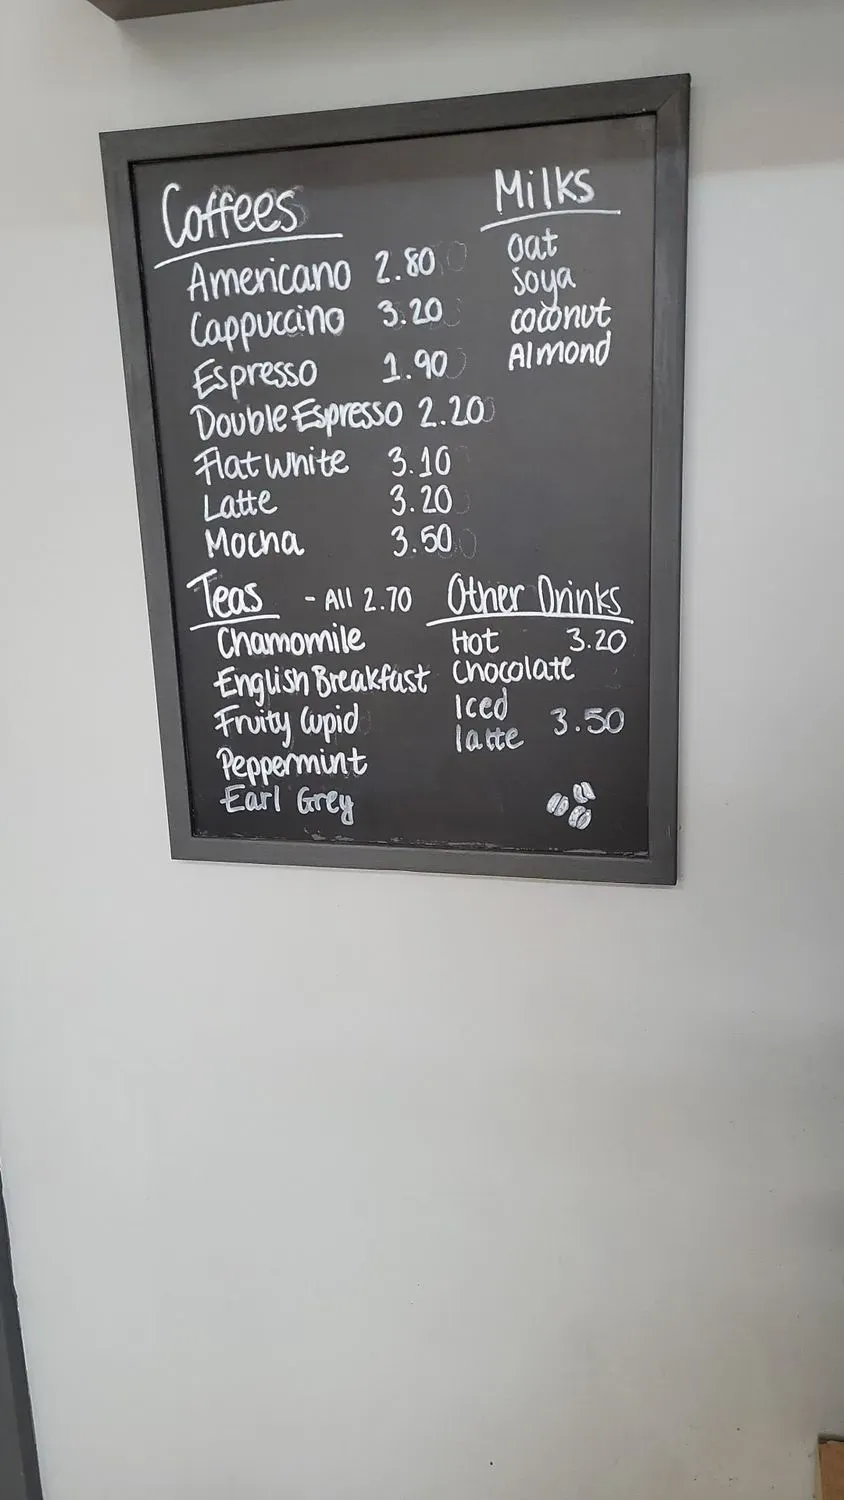 Coffees
Americano 2.80
Cappuccino 3.20
Espresso 1.90
Double Espresso 2.20
Flat White 3.10
Latte 3.20
Mocha 3.50
Milks
Oat
Soya
coconut
Almond
Teas - All 2.70
Chamomile
English Breakfast
Fruity Cupid
Peppermint
Earl Grey
Other Drinks
Hot 3.20
Chocolate
Iced
latte 3.50